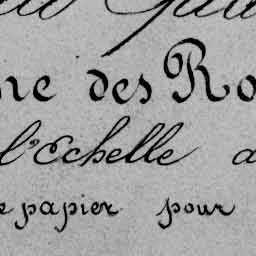 ne des Ro
l'Echelle a
e papier pour